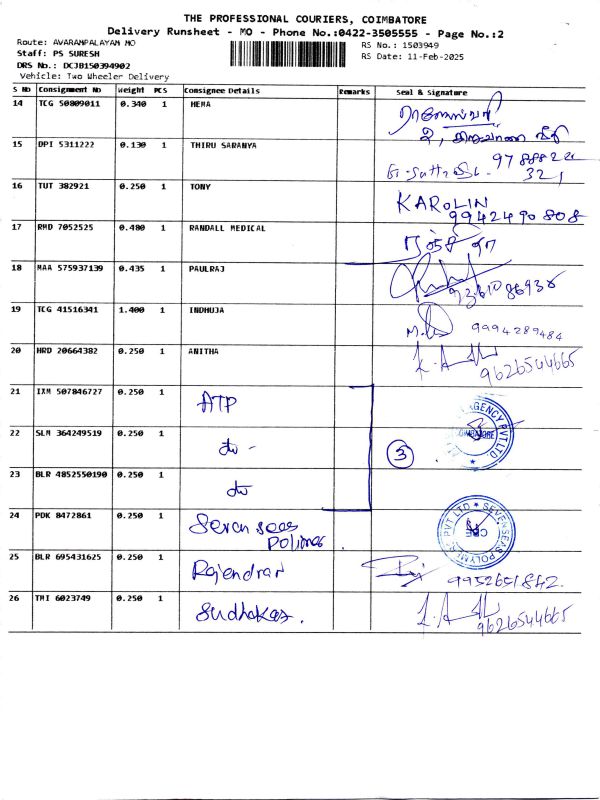 THE PROFESSIONAL COURIERS, COIMBATORE
Delivery Runsheet - MO - Phone No.:0422-3505555 - Page No.:2
Route: AVARAMPALAYAM MO
RS No.: 1503949
Staff: PS SURESH
RS Date: 11-Feb-2025
DRS No.: DCJB150394902
Vehicle: Two Wheeler Delivery
S No Consignment No Weight PCS Consignee Details Remarks Seal & Signature
14 TCG 50809011 0.340 1 HEMA
15 DPI 5311222 0.130 1 THIRU SARANYA
978882
321
16 TUT 382921 0.250 1 TONY KAROLIN
9942490808
17 RMD 7052525 0.480 1 RANDALL MEDICAL
18 MAA 575937139 0.435 1 PAULRAJ
19 TCG 41516341 1.400 1 INDHUJA 9994289484
20 HRD 20664382 0.250 1 ANITHA
9626544665
21 IXM 507846727 0.250 1 ATP
22 SLM 364249519 0.250 1 3
23 BLR 4852550190 0.250 1
24 PDK 8472861 0.250 1 Seven seas
Polimer
25 BLR 695431625 0.250 1 Rajendran 9952651842.
26 TMI 6023749 0.250 1 Sudhakar.
9626544665
AGENCY PVT LTD
COIMBATORE
SEVENSEAS POLYMER PVT LTD
CBE